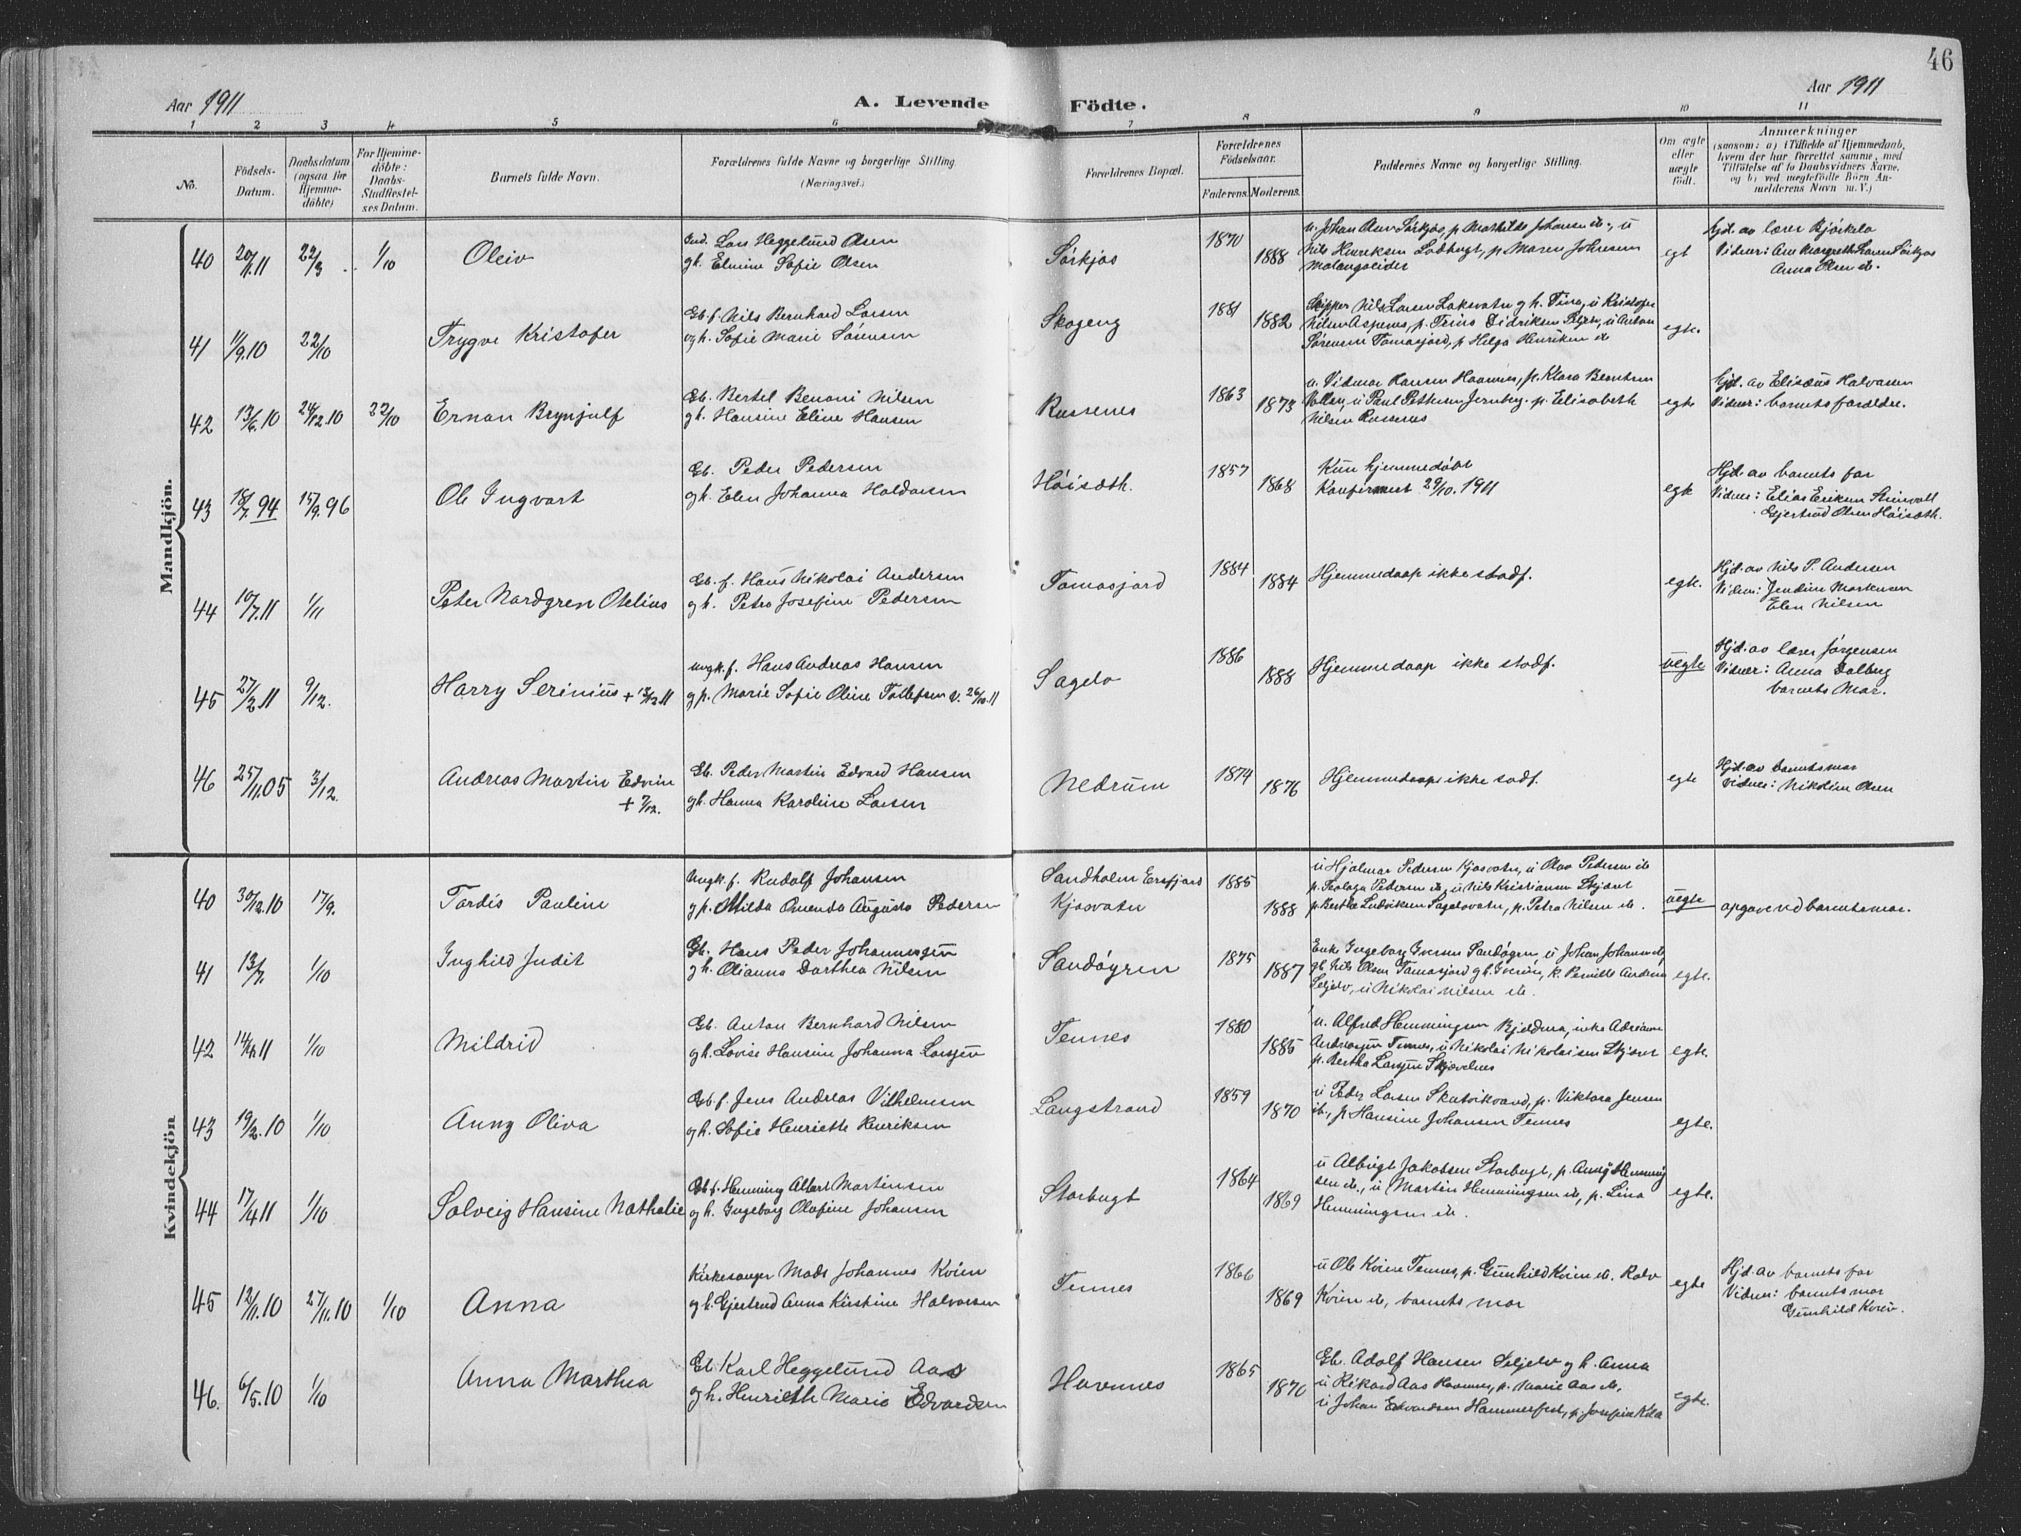 46
Aar 1911
A. Levende Födte.
Aar 1911
1 2 3 4 5 6 7 8 9 10 11
No.
Födsels-
Datum.
Daabsdatum
(ogsaa for
Hjemme-
döbte)
For Hjemme-
döbte:
Daabs-
Stadfæstel-
ses Datum.
Barnets fulde Navn.
Forældrenes fulde Navne og borgerlige Stilling.
(Næringsvei.)
Forældrenes Bopæl.
Forældrenes
Födselsaar.
Faderens. Moderens.
Faddernes Navne og borgerlige Stilling.
Om ægte
eller
uægte
födt.
Anmærkninger
(saasom: a) i Tilfælde af Hjemmedaab,
hvem der har forrettet samme, med
Tilföielse af to Daabsvidners Navne,
og b) ved uægtefödte Börn An-
melderens Navn m. V.)
Mandkjön.
40 20/1.11 22/3 1/10 Oleiv
Ind. Lars Heggelund Olsen
gh. Elmine Sofie Olsen
Sörkjos 1870 1888
u. Johan Olsen Sörkjos, p. Mathilde Johansen ib., u
Nils Henriksen Lodbugt, p. Maren Johnsen
Malangseidet
egt
Hjd. av lærer Bjørklo
Vidner: Ane Margrethe Larsen Sörkjos
Anna Olsen ib.
41 11/9.10 22/10 Trygve Kristofer
Gb. f. Nils Bernhard Larsen
og h. Sofie Marie Sörensen
Skogeng 1881 1882
Skipper Nils Larsen Laksvatn g h. Tina, u Kristofer
Nilsen Aspenes, p. Trine Didriksen Seljelv, u Anton
Sørensen Tomasjord, p Helga Henriksen ib
egte.
42 13/6.10 24/12.10 22/10 Ernan Brynjulf
Gb. Bertel Benoni Nilsen
gh. Hansine Eline Hansen
Russenes 1863 1873
u. Vidmar Hansen Havnnes, p. Klara Berntsen
Volley, u Paul Pettersen Jernberg, p. Elisabeth
Nilsen Russenes
egte
Hjd. av Elisæus Halvorsen
Vidner: barnets forældre.
43 18/7.94 15/9.96 Ole Ingvart
Gb. Peder Pedersen
gh. Elen Johanna Haldorsen
Höisæth. 1857 1868
Kun hjemmedöbt
Konfirmert 29/10.1911
egte
Hjd. av barnets far
Vidner: Elias Eriksen Steinvoll
Gjertrud Olsen Höisæth.
44 10/7.11 1/11 Peter Nordgren Otelius
Gb. f. Hans Nikolai Andersen
gh. Petra Josefine Pedersen
Tomasjord 1884 1884
Hjemmedaap ikke stadf.
egte.
Hjd. av Nils P. Andersen
Vidner: Jendine Mortensen
Elen Nilsen
45 27/2.11 9/12. Harry Serinius + 13/12 11
Ungk. f. Hans Andreas Hansen
g p. Marie Sofie Oline Tollefsen v. 26/10.11
Sagelv 1886 1888
Hjemmedaap ikke stadf.
uegte
Hjd. av lærer Jørgensen
Vidner: Anna Dalberg
barnets Mor.
46 25/11.05 3/12. Andreas Martin Edvin
+ 7/12.
Gb. Peder Martin Edvard Hansen
gh. Hanna Karoline Larsen
Nedrum 1874 1876
Hjemmedaap ikke stadf.
egte
Hjd. av barnets mor
Vidner: Nikoline Olsen
Kvindekjön
40 30/12.10 17/9. Tordis Pauline
Ungk. f. Rudolf Johansen
g p. Milda Omenda Augusta Pedersen
Sandholm Ersfjord
Kjosvatn 1885 1888
u Hjalmar Pedersen Kjosvatn, u Olav Pedersen ib
p. Teologa Pedersen ib, u Nils Kristiansen Skjæret
p. Berthe Ludviksen Sagelvvatn, p. Petra Nilsen ib.
uegte
opgave ved barnets mor.
41 13/7. 1/10 Inghild Judit
Gb. Hans Peder Johannessen
gh. Olianna Dorthea Nilsen
Sandöyren 1875 1887
Enke Ingeborg Iversen Sandögren, u Johan Johansen ib,
gb. Nils Olsen Tomasjord g h. Iverine, k. Pernille Anders
Seljelv, u Nikolai Nilsen ib.
egte.
42 14/2.11 1/10 Mildrid
Gb. Anton Bernhard Nilsen
gh. Lovise Hansine Johanna Larssen
Tennes 1880 1885
u. Alfred Hemmingsen enke Adriane
Andreassen Tennes, u Nikolai Nikolaisen Skjæret
p. Bertha Larssen Skjævelnes
egte.
43 19/2.10 1/10 Anny Oliva
Gb. f. Jens Andreas Vilhelmsen
gh. Sofie Henriette Henriksen
Langstrand 1859 1870
u Peder Larsen Skutvikvand, p. Viktora Jensen
ib., p Hansine Johansen Tennes
egte.
44 17/4.11 1/10 Solveig Hansine Nathalie
Gb. f. Henning Albert Martinsen
gh. Ingeborg Olufine Johansen
Storbugt 1864 1869
u Albrigt Jakobsen Storbugt, p. Anny Hemming
sen ib., u Martin Hemmingsen ib, p. Lina
Hemmingsen ib.
egte.
45 12/11.10 27/11.10 1/10 Anna
Kirkesanger Mads Johannes Kvien
gh. Gjertrud Anna Kirstine Halvorsen
Tennes 1866 1869
u Ole Kvien Tennes, p. Gunhild Kvien ib. Rolv
Kvien ib, barnets mor
egte
Hjd. av barnets far
Vidner: barnets mor
Gunhild Kvien.
46. 6/5.10 1/10 Anna Marthea
Gb Karl Heggelund Aas
gh. Henriette Marie Edvardsen
Havnnes 1865 1870
Gb. Adolf Hansen Seljelv g h. Anna
u Rikard Aas Havnnes, p. Marie Aas ib,
u Johan Edvardsen Hammerfest, p. Josefine
egte.